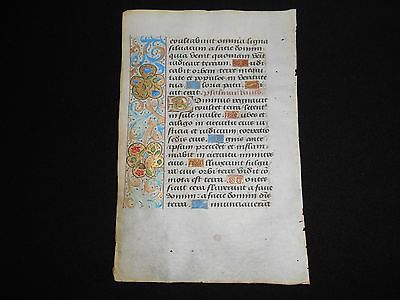 exultabunt omnia ligna
silvarum a facie domini
quia venit quoniam venit
iudicare terram
iudi
cabit orbem terre in equi
tate et populos in veritate
sua Gloria patri
Sic
ut erat Psalmus david
Dominus regnavit
exultet terra leten
tur insule multe Nubes et
caligo in circuitu eius ius
ticia et iudicium correctio
sedis eius Ignis ante
ipsum precedet et inflam
mabit in circuitu inimicos
eius Illuxerunt fulgu
ra eius orbi terre vidit et co
mota est terra Montes
sicut cera fluxerunt a facie
domini a facie domini omnis
terra Annunciaverunt